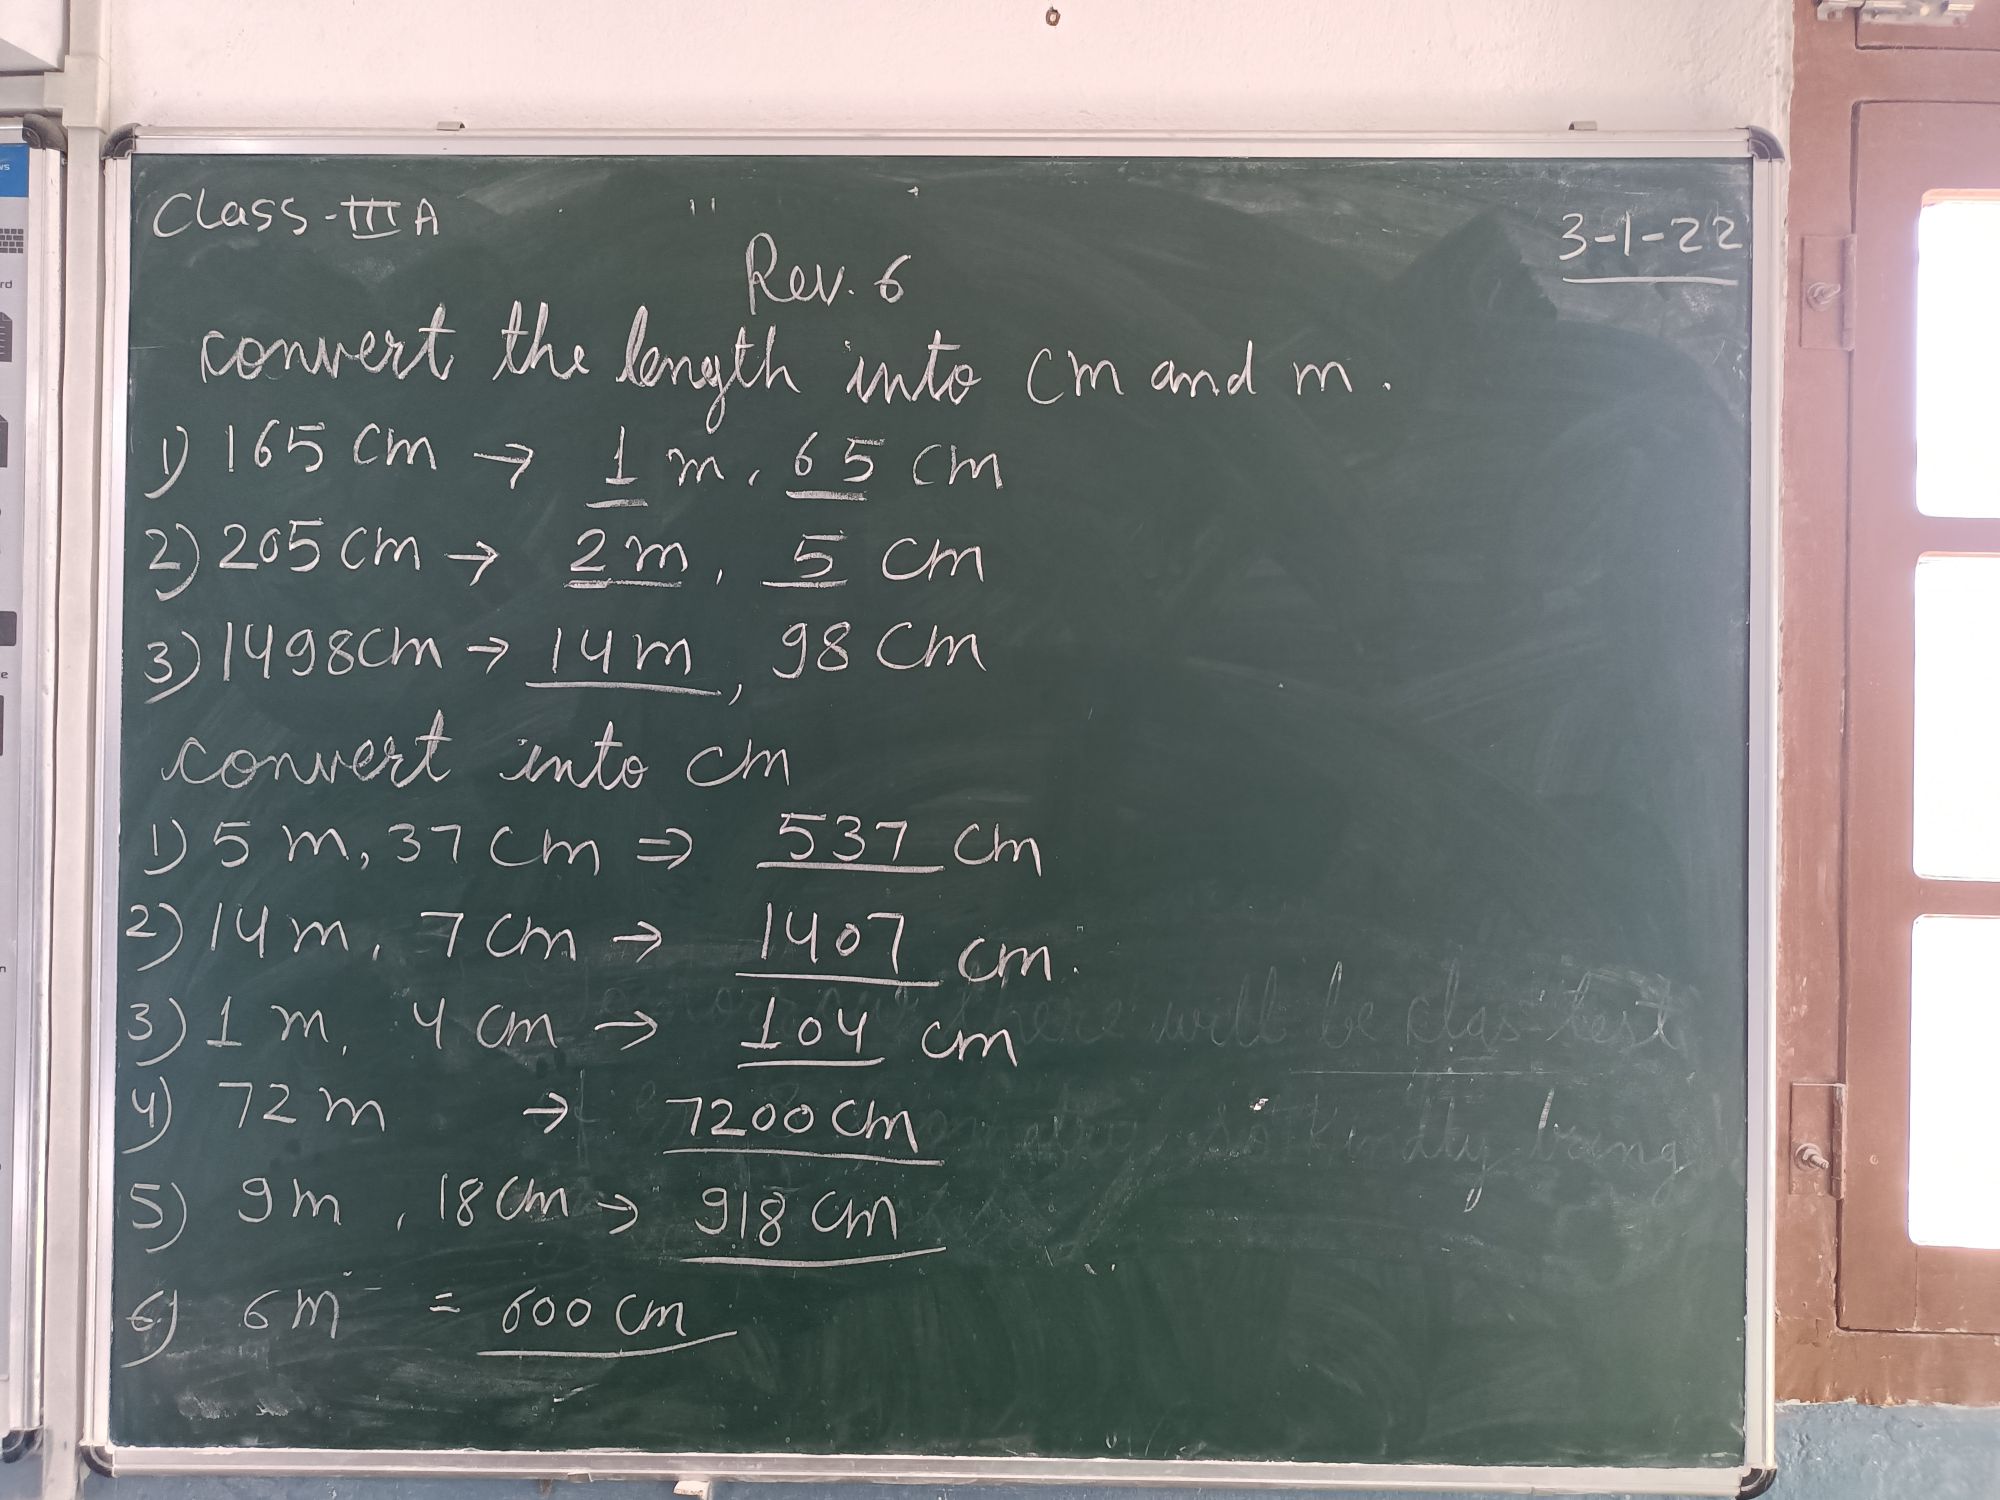 Class-III A
3-1-22
Rev. 6
convert the length into cm and m.
1) 165 cm → 1 m, 65 cm
2) 205 cm → 2 m, 5 cm
3) 1498 cm → 14 m, 98 cm
convert into cm
1) 5 m, 37 cm ⇒ 537 cm
2) 14 m, 7 cm → 1407 cm.
3) 1 m, 4 cm → 104 cm
4) 72 m → 7200 cm
5) 9 m, 18 cm → 918 cm
6) 6 m = 600 cm
there will be clas test
so kindly bring